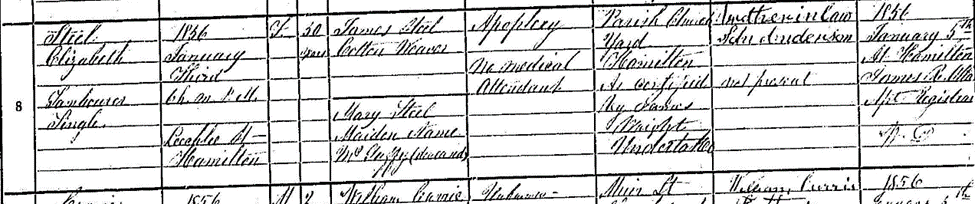 8
Steel
Elizabeth
Tambourer
Single
1856
January
Third
6h. m. P.M.
Hamilton
F
50
years
James Steel
Cotton Weaver
Mary Steel
Maiden Name
(deceased)
Apoplexy
No medical
Attendant
Parish Church
Yard
Hamilton
As certified
by James
Wright
Undertaker
Brother in law
John Anderson
not present
1856
January 5th
At Hamilton
James
Registrar
1856
M
2
William Currie
Unknown
Muir St
William Currie
1856